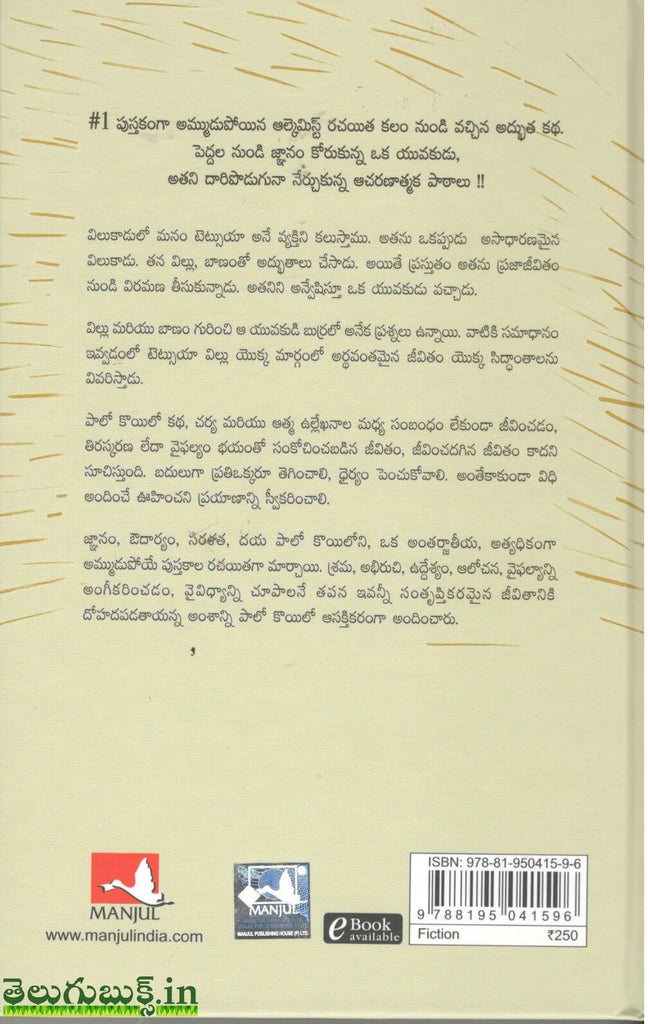 #1 పుస్తకంగా అమ్ముడుపోయిన ఆల్కెమిస్ట్ రచయిత కలం నుండి వచ్చిన అద్భుత కథ.
పెద్దల నుండి జ్ఞానం కోరుకున్న ఒక యువకుడు,
అతని దారిపొడుగునా నేర్చుకున్న ఆచరణాత్మక పాఠాలు !!
విలుకాడులో మనం టెట్సుయా అనే వ్యక్తిని కలుస్తాము. అతను ఒకప్పుడు అసాధారణమైన
విలుకాడు. తన విల్లు, బాణంతో అద్భుతాలు చేసాడు. అయితే ప్రస్తుతం అతను ప్రజాజీవితం
నుండి విరమణ తీసుకున్నాడు. అతనిని అన్వేషిస్తూ ఒక యువకుడు వచ్చాడు.
విల్లు మరియు బాణం గురించి ఆ యువకుడి బుర్రలో అనేక ప్రశ్నలు ఉన్నాయి. వాటికి సమాధానం
ఇవ్వడంలో టెట్సుయా విల్లు యొక్క మార్గంలో అర్థవంతమైన జీవితం యొక్క సిద్ధాంతాలను
వివరిస్తాడు.
పాలో కొయిలో కథ, చర్య మరియు ఆత్మ ఉల్లేఖనాల మధ్య సంబంధం లేకుండా జీవించడం,
తిరస్కరణ లేదా వైఫల్యం భయంతో సంకోచించబడిన జీవితం, జీవించదగిన జీవితం కాదని
సూచిస్తుంది. బదులుగా ప్రతిఒక్కరూ తెగించాలి, ధైర్యం పెంచుకోవాలి. అంతేకాకుండా విధి
అందించే ఊహించని ప్రయాణాన్ని స్వీకరించాలి.
జ్ఞానం, ఔదార్యం, సరళత, దయ పాలో కొయిలోని, ఒక అంతర్జాతీయ, అత్యధికంగా
అమ్ముడుపోయే పుస్తకాల రచయితగా మార్చాయి. శ్రమ, అభిరుచి, ఉద్దేశ్యం, ఆలోచన, వైఫల్యాన్ని
అంగీకరించడం, వైవిధ్యాన్ని చూపాలనే తపన ఇవన్నీ సంతృప్తికరమైన జీవితానికి
దోహదపడతాయన్న అంశాన్ని పాలో కొయిలో ఆసక్తికరంగా అందించారు.
MANJUL
www.manjulindia.com
MANJUL
MANJUL PUBLISHING HOUSE (P) LTD.
eBook
available
ISBN: 978-81-950415-9-6
9 788195 041596
Fiction ₹250
తెలుగుబుక్స్.in